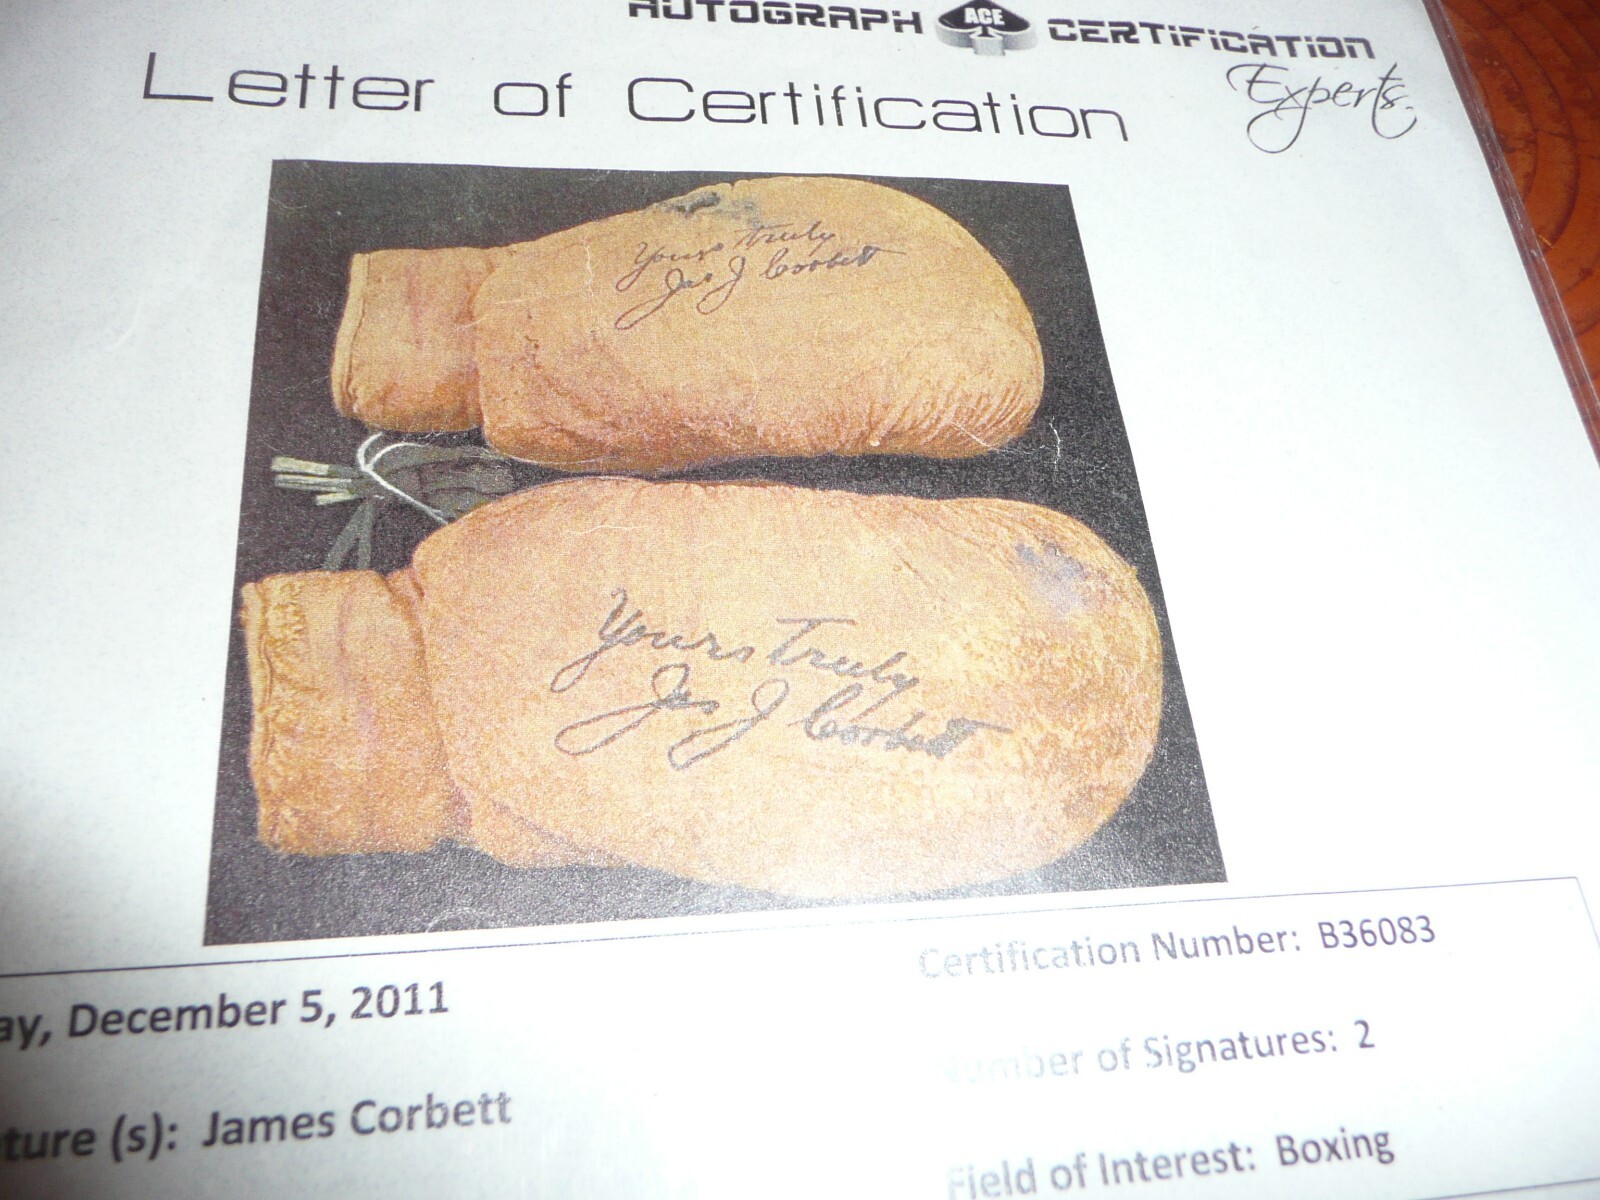 AUTOGRAPH ACE CERTIFICATION
Experts
Letter of Certification
Yours truly
Jas J Corbett
Yours Truly
Jas J Corbett
ay, December 5, 2011
Certification Number: B36083
Number of Signatures: 2
ture (s): James Corbett
Field of Interest: Boxing